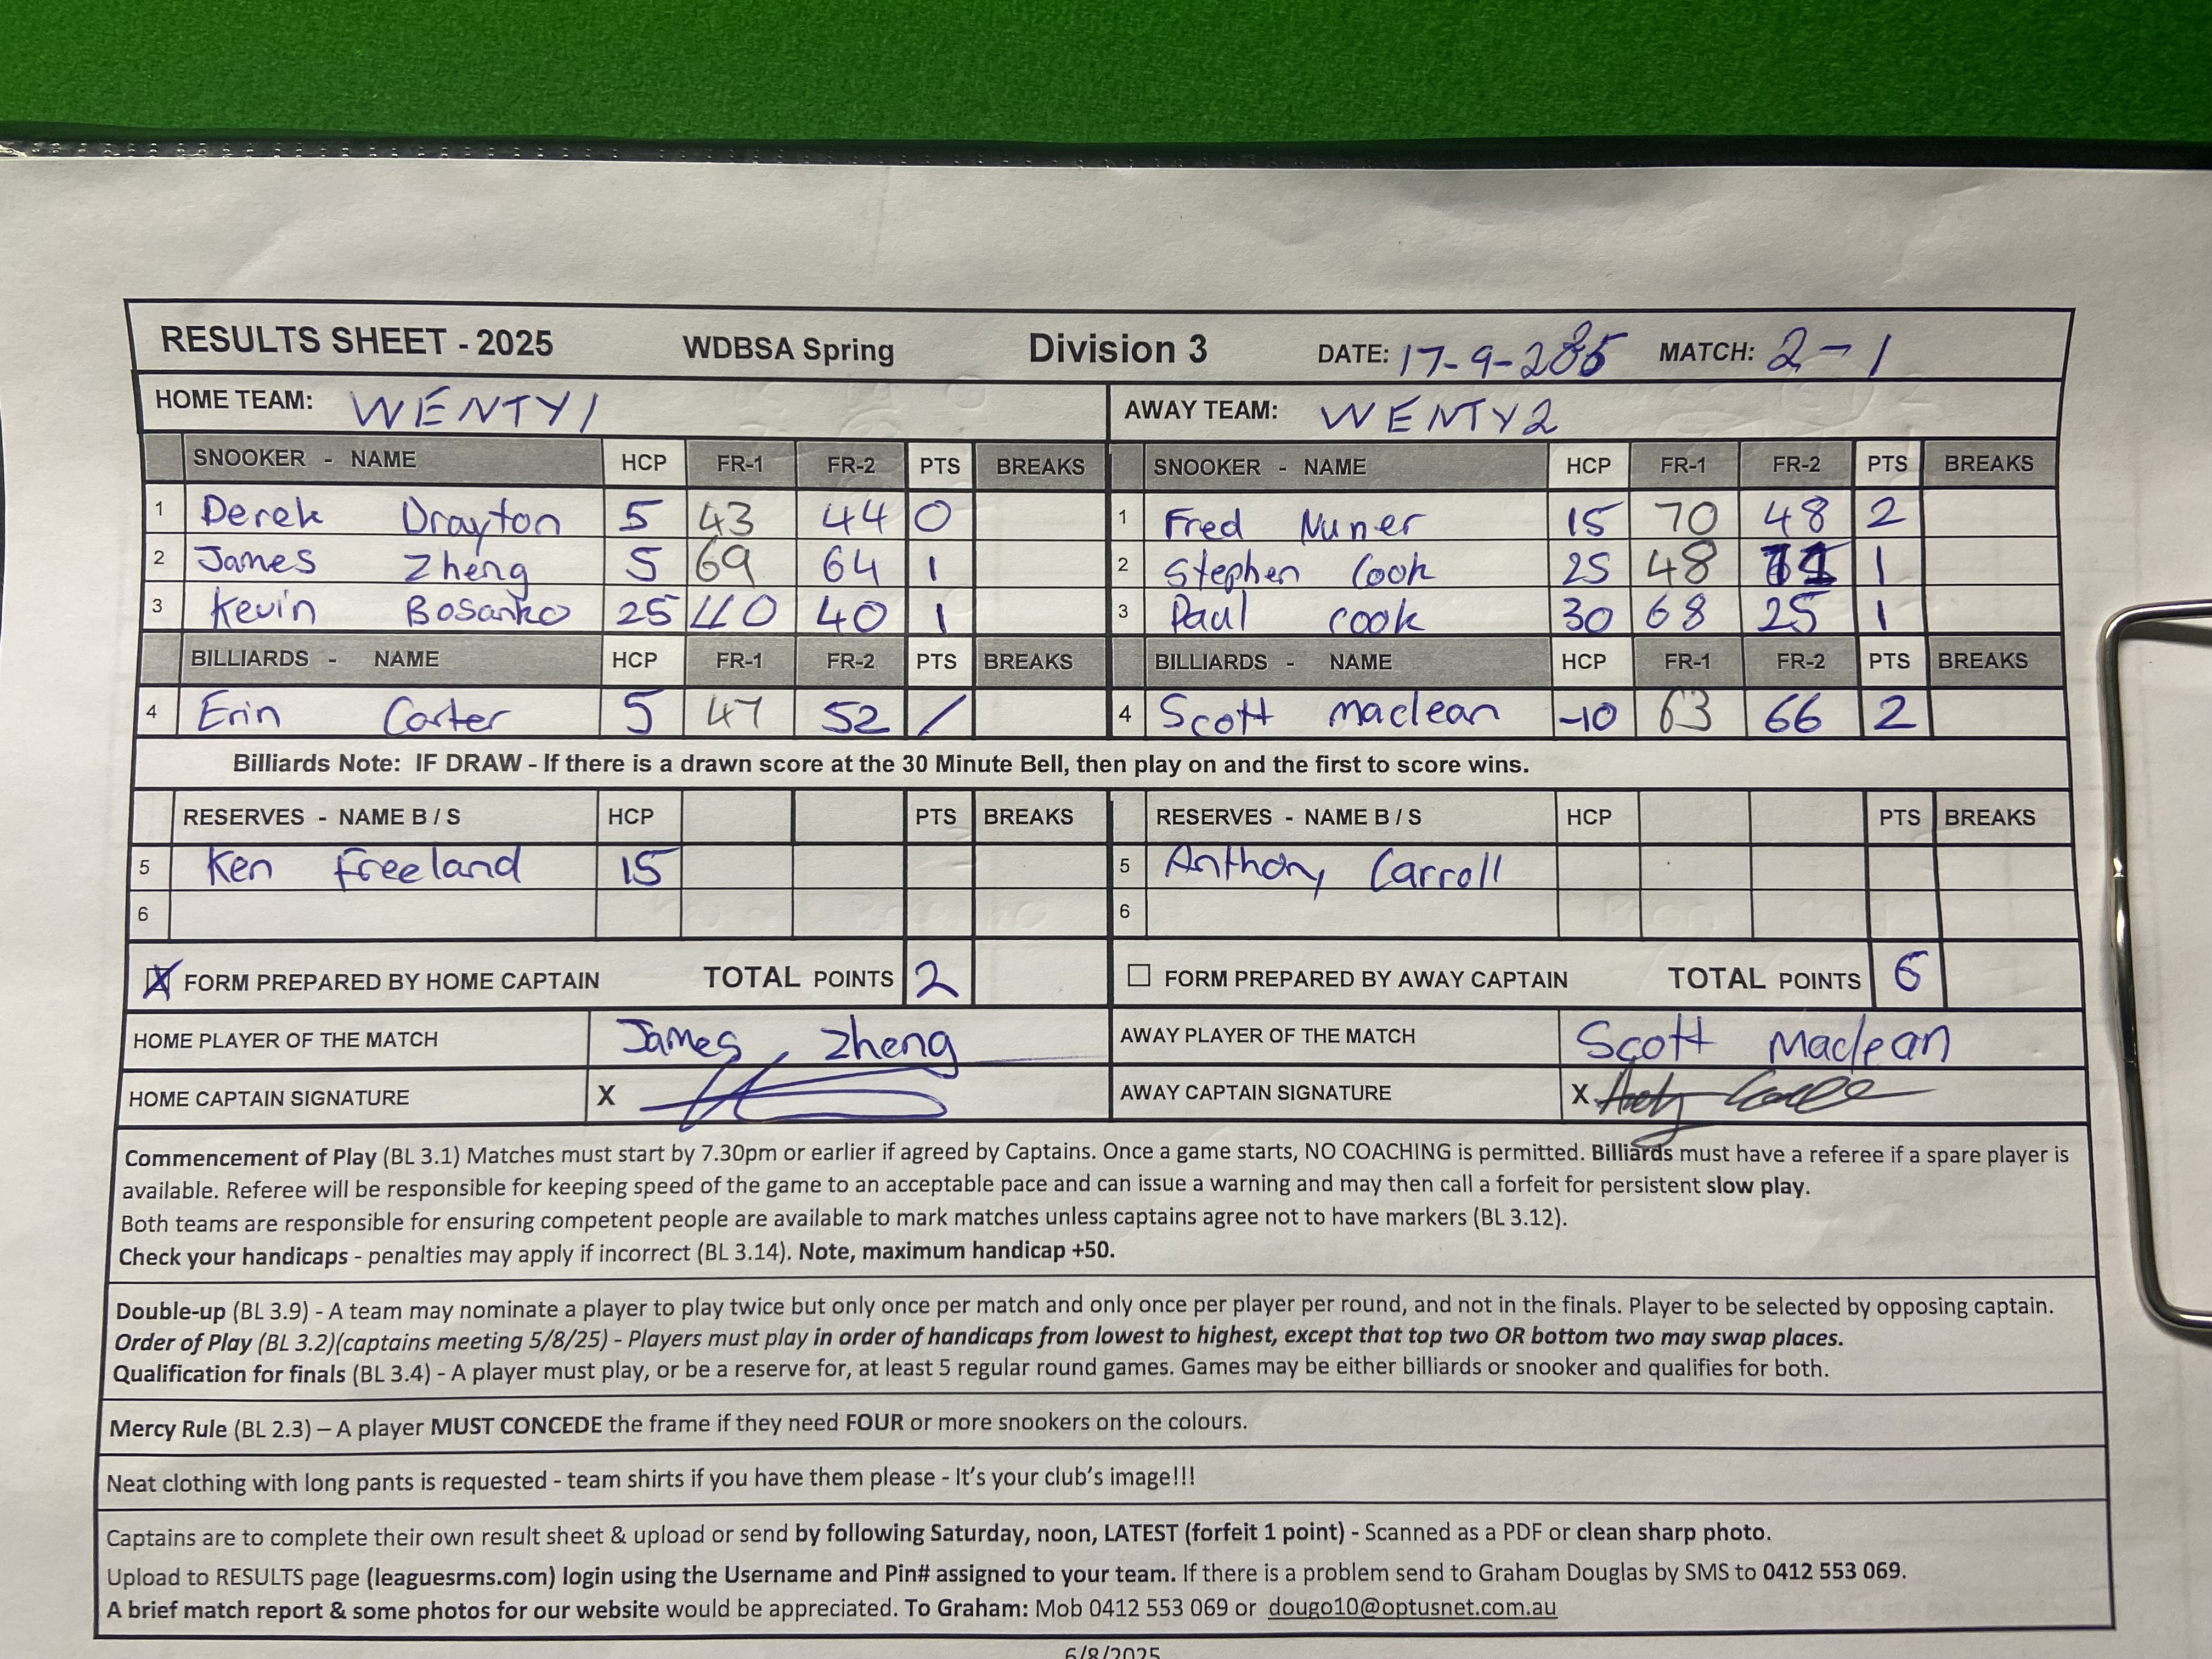 RESULTS SHEET - 2025 WDBSA Spring Division 3 DATE: 17-9-2025 MATCH: 2-1
HOME TEAM: WENTY 1 AWAY TEAM: WENTY 2
SNOOKER - NAME HCP FR-1 FR-2 PTS BREAKS SNOOKER - NAME HCP FR-1 FR-2 PTS BREAKS
1 Derek Drayton 5 43 44 0 1 Fred Nuner 15 70 48 2
2 James Zheng 5 69 64 1 2 Stephen Cook 25 48 1
3 Kevin Bosanko 25 40 1 3 Paul Cook 30 68 25 1
BILLIARDS - NAME HCP FR-1 FR-2 PTS BREAKS BILLIARDS - NAME HCP FR-1 FR-2 PTS BREAKS
4 Erin Carter 5 47 52 / 4 Scott Maclean -10 63 66 2
Billiards Note: IF DRAW - If there is a drawn score at the 30 Minute Bell, then play on and the first to score wins.
RESERVES - NAME B / S HCP PTS BREAKS RESERVES - NAME B / S HCP PTS BREAKS
5 Ken Freeland 15 5 Anthony Carroll
6 6
FORM PREPARED BY HOME CAPTAIN TOTAL POINTS 2 FORM PREPARED BY AWAY CAPTAIN TOTAL POINTS 6
HOME PLAYER OF THE MATCH James Zheng AWAY PLAYER OF THE MATCH Scott Maclean
HOME CAPTAIN SIGNATURE X AWAY CAPTAIN SIGNATURE X
Commencement of Play (BL 3.1) Matches must start by 7.30pm or earlier if agreed by Captains. Once a game starts, NO COACHING is permitted. Billiards must have a referee if a spare player is
available. Referee will be responsible for keeping speed of the game to an acceptable pace and can issue a warning and may then call a forfeit for persistent slow play.
Both teams are responsible for ensuring competent people are available to mark matches unless captains agree not to have markers (BL 3.12).
Check your handicaps - penalties may apply if incorrect (BL 3.14). Note, maximum handicap +50.
Double-up (BL 3.9) - A team may nominate a player to play twice but only once per match and only once per player per round, and not in the finals. Player to be selected by opposing captain.
Order of Play (BL 3.2)(captains meeting 5/8/25) - Players must play in order of handicaps from lowest to highest, except that top two OR bottom two may swap places.
Qualification for finals (BL 3.4) - A player must play, or be a reserve for, at least 5 regular round games. Games may be either billiards or snooker and qualifies for both.
Mercy Rule (BL 2.3) – A player MUST CONCEDE the frame if they need FOUR or more snookers on the colours.
Neat clothing with long pants is requested - team shirts if you have them please - It's your club's image!!!
Captains are to complete their own result sheet & upload or send by following Saturday, noon, LATEST (forfeit 1 point) - Scanned as a PDF or clean sharp photo.
Upload to RESULTS page (leaguesrms.com) login using the Username and Pin# assigned to your team. If there is a problem send to Graham Douglas by SMS to 0412 553 069.
A brief match report & some photos for our website would be appreciated. To Graham: Mob 0412 553 069 or dougo10@optusnet.com.au
6/8/2025